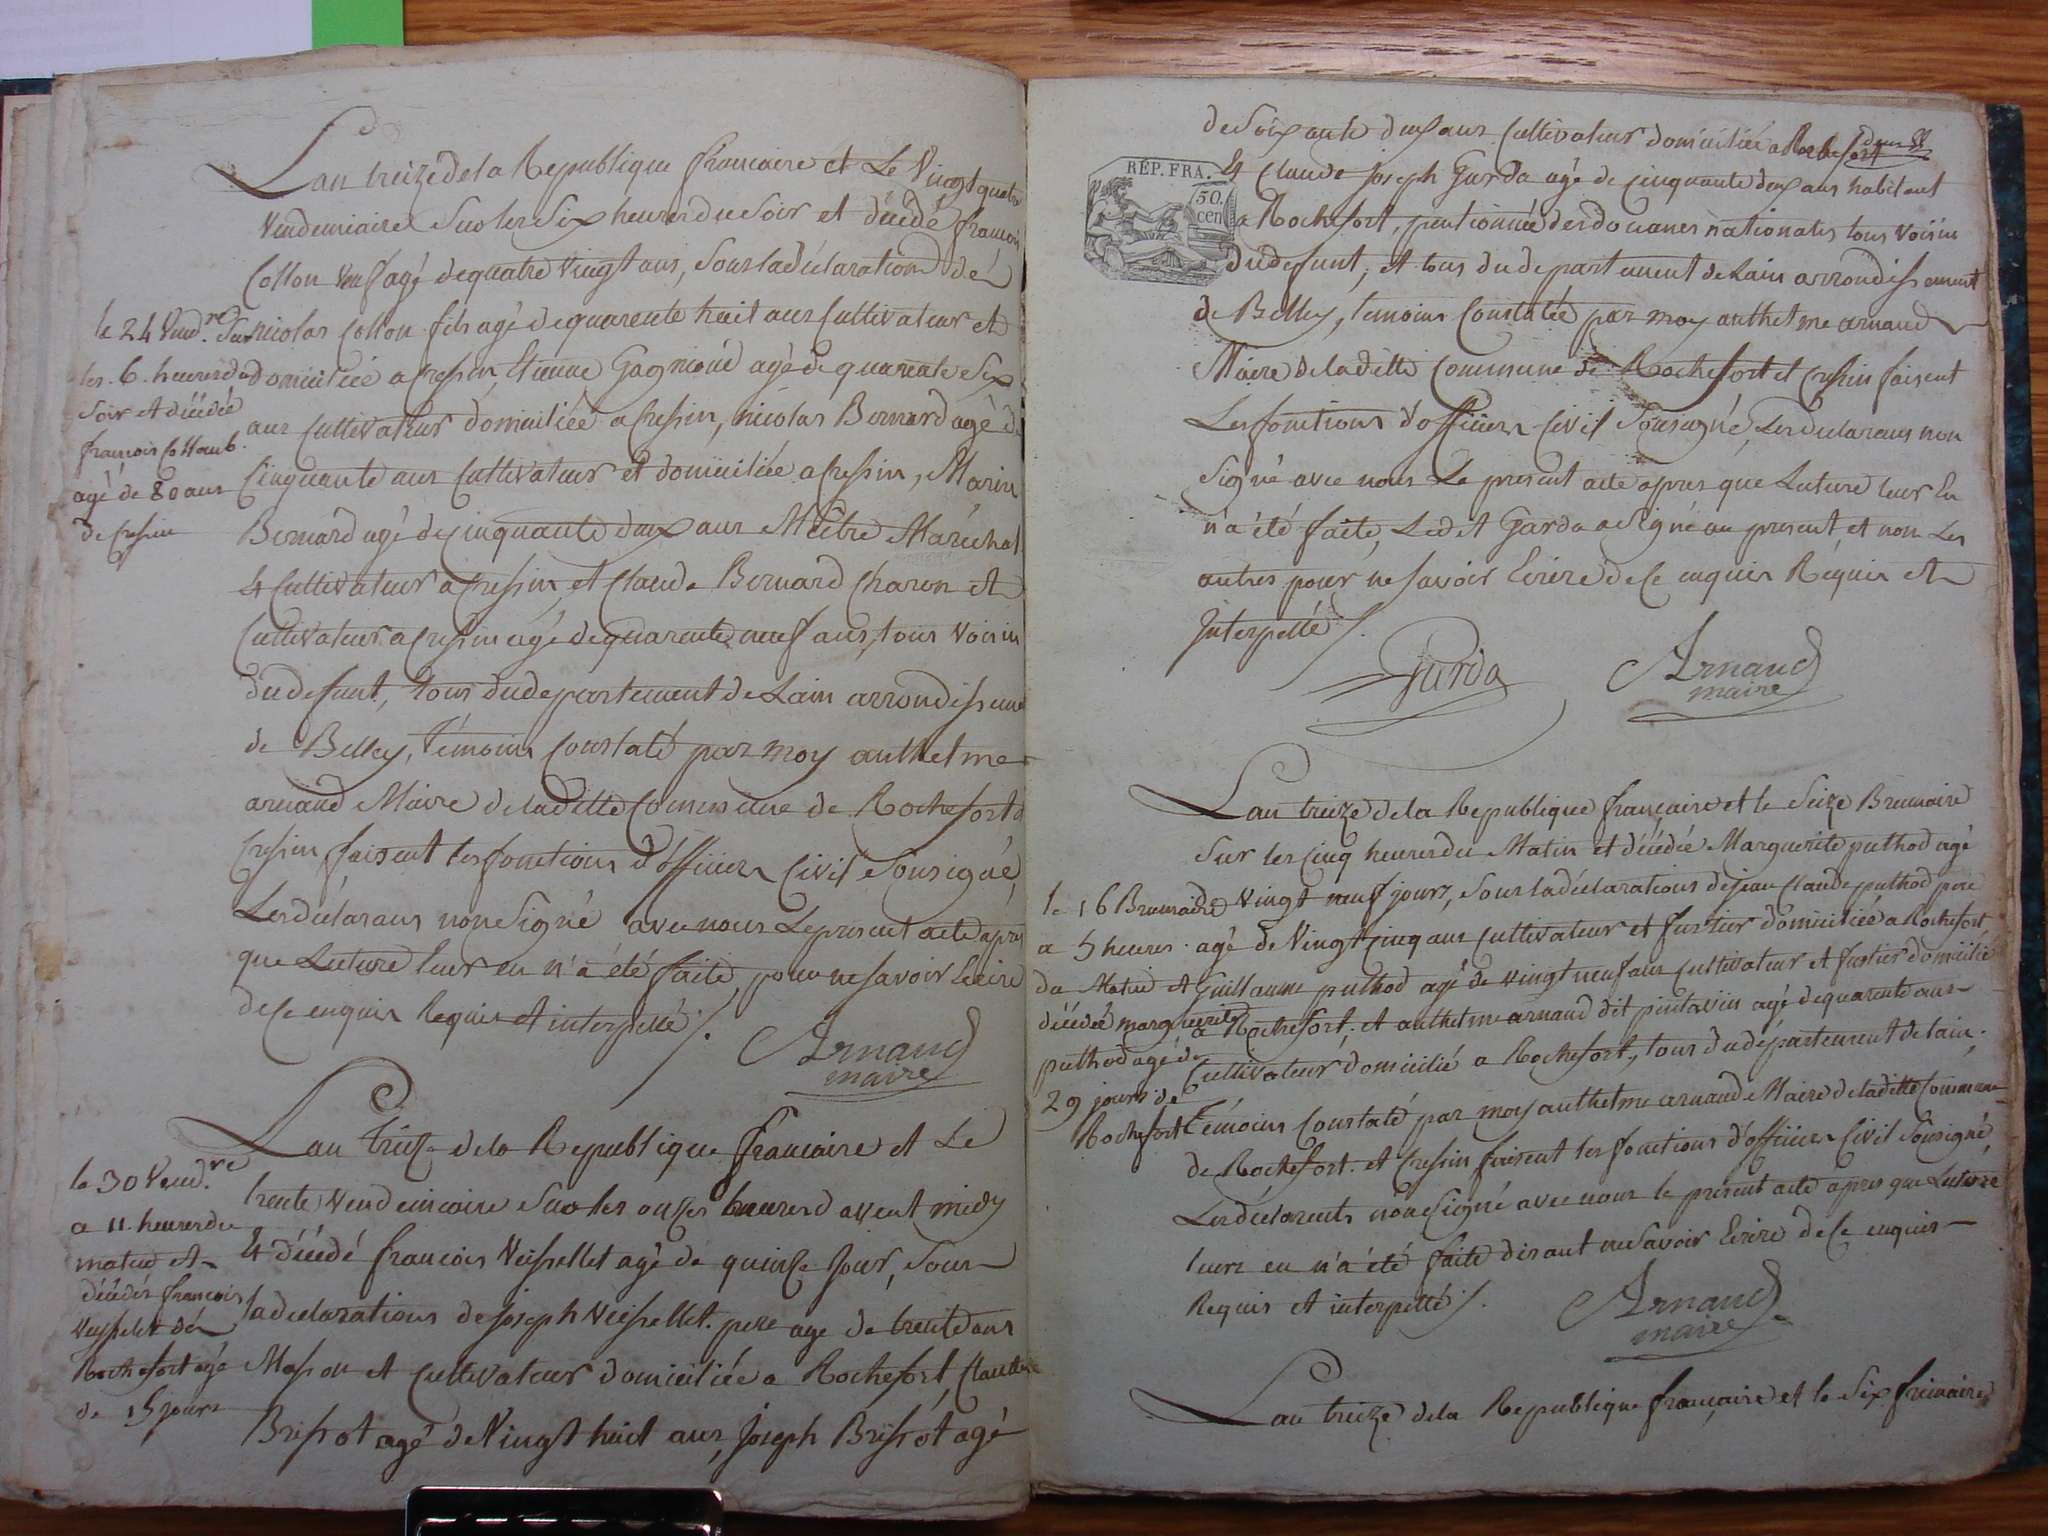 Lan treize de la Republique francaire et Le Vingt quatre
Vendemiaire Sur les Six heures du Soir et décédé francois
Collon Veuf agé de quatre vingt ans, Sous la déclaration de
nicolas Collon fils agé de quarente huit ans Cultivateur et
domiciliée a Cressin, Etienne Gagnioud agé de quarante Six
ans Cultivateur domiciliée a Cressin, nicolas Bernard agé de
Cinquante ans Cultivateur et domiciliée a Cressin, Marin
Bernard agé de Cinquante deux ans Mètre Maréchal
& Cultivateur a Cressin, et Claude Bernard Charon et
Cultivateur a Cressin agé de quarente neuf ans, tous voisin
du defunt, tous du departement de Lain arrondissement
de Belley, témoins Constaté par moy anthelme
arnaud Maire de la ditte Commune de Rochefort &
Cressin faisent les fonctions d'officier Civil Sousigné,
Les déclarans non Signé avec nous Le present acte apres
que Lecture leur en n'a été faite, pour ne Savoir Ecrire
de Ce enquis Requis et interpellé /.
Arnaud
maire
le 24 Vend.re Sur
les 6 heures du
Soir et décédée
francois Collon
agé de 80 ans
de Cressin
Lan treize de la Republique francaire et Le
trente Vendemiaire Sur les onzes heures davent midy
& décédé francois Veissellet agé de quinze Jour, Sous
la declarations de joseph Veissellet pere age de trente ans
Masson et Cultivateur domiciliée a Rochefort, Claude
Brissot agé de Vingt huit ans, Joseph Brissot agé
le 30 Vend.re
a 11 heures du
matin et
décédés francois
Veisselet de
Rochefort agé
de 15 jours
de Soixante deux ans Cultivateur domiciliée a Rochefort
RÉP. FRA.
50
cen
& Claude Joseph Garda agé de cinquante deux ans habitant
a Rochefort, pentionnée des douanes nationales tous voisin
du defunt, et tous du departement de Lain arrondissement
de Belley, temoins Constatée par moy anthelme arnaud
Maire de la ditte Commune de Rochefort et Cressin faisent
Les fonctions d'officier Civil Sousigné, Les declarans non
Signé avec nous Le present acte apres que Lecture leur En
n'a été faite, Ledit Garda a Signé au present, et non Les
autres pour ne savoir Ecrire de Ce enquis Réquis et
Interpellé /.
Garda
Arnaud
maire
Lan treize de la Republique francaire et le Seize Brumaire
Sur les Cinq heures du Matin et décédée Marguerite puthod agé
Vingt neuf jours, Sous la déclarations de jean Claude puthod pere
agé de Vingt Cinq ans Cultivateur et fustier domiciliée a Rochefort,
et Guillaume puthod agé de vingt neuf ans Cultivateur et fustier domicilié
a Rochefort, et anthelme arnaud dit pintavin agé de quarente ans
Cultivateur domicilié a Rochefort, tous du département de lain.
témoins Constaté par moy anthelme arnaud Maire de la ditte Commune
de Rochefort et Cressin faisent les fonctions d'officier Civil Sousigné,
Les déclarents non Signé avec nous le présent acte apres que Lecture
leurs en n'a été faite disant ne Savoir Ecrire de Ce enquis
Requis et interpellé /.
Arnaud
maire
le 16 Brumaire
a 5 heures
du Matin et
décédée marguerite
puthod agé de
29 jours de
Rochefort
Lan treize de la Republique francaire et le Six frimaire